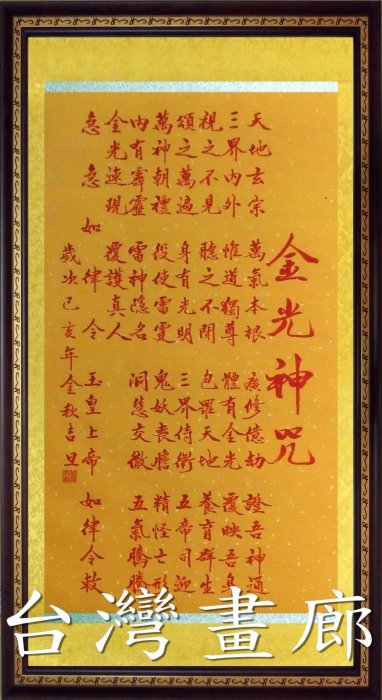 金光神咒
天地玄宗 萬氣本根 廣修億劫 證吾神通
三界內外 惟道獨尊 體有金光 覆映吾身
視之不見 聽之不聞 包羅天地 養育群生
頌之萬遍 身有光明 三界侍衛 五帝司迎
萬神朝禮 役使雷霆 鬼妖喪膽 精怪亡形
內有霹靂 雷神隱名 洞慧交徹 五氣騰騰
金光速現 覆護真人
急急如律令 玉皇上帝 如律令敕
歲次己亥年金秋吉旦
台灣畫廊